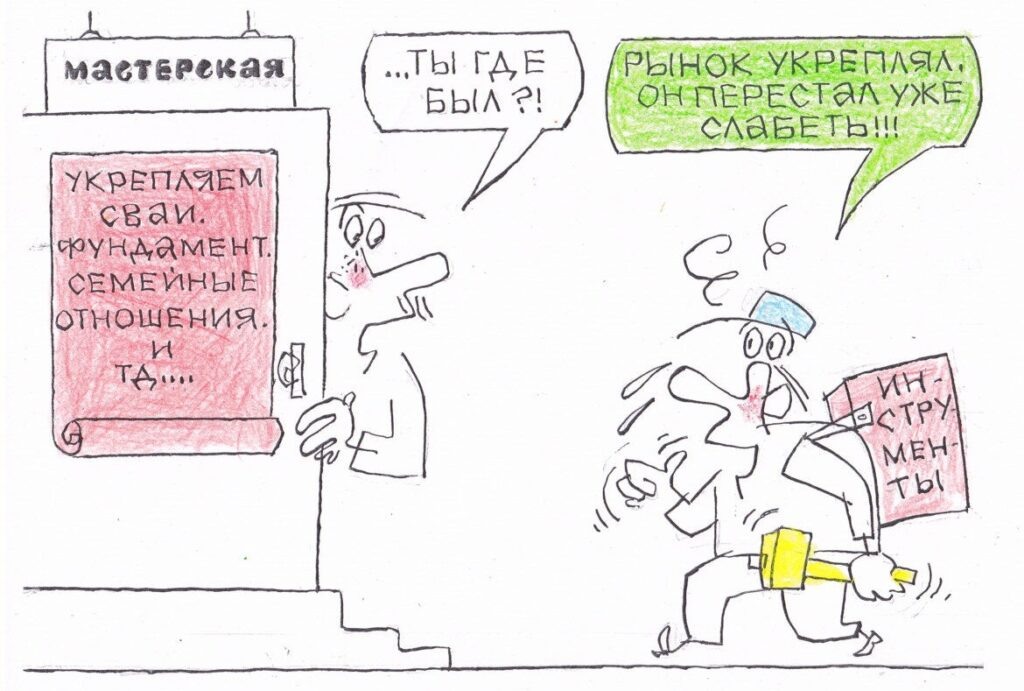 МАСТЕРСКАЯ
УКРЕПЛЯЕМ
СВАИ.
ФУНДАМЕНТ.
СЕМЕЙНЫЕ
ОТНОШЕНИЯ.
И
ТД....
...ТЫ ГДЕ
БЫЛ?!
РЫНОК УКРЕПЛЯЛ.
ОН ПЕРЕСТАЛ УЖЕ
СЛАБЕТЬ!!!
ИН-
СТРУ-
МЕН-
ТЫ